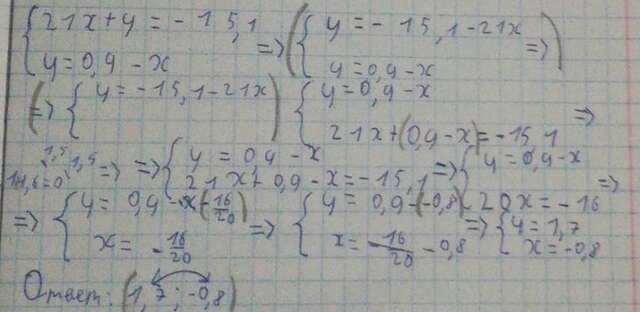 {21x+y = -15,1
{y=0,9-x => ({y = -15,1-21x
{y=0,9-x =>)
(=> {y = -15,1-21x) {y=0,9-x
{21x+(0,9-x)=-15,1 =>
=> => {y = 0,9-x
{21x+0,9-x=-15,1 => {y=0,9-x
{20x=-16 =>
=> {y= 0,9-x(-16/20)
{x= -16/20 => {y= 0,9-(-0,8)
{x= -16/20 -0,8 => {y=1,7
{x=-0,8
Ответ: (1,7; -0,8)